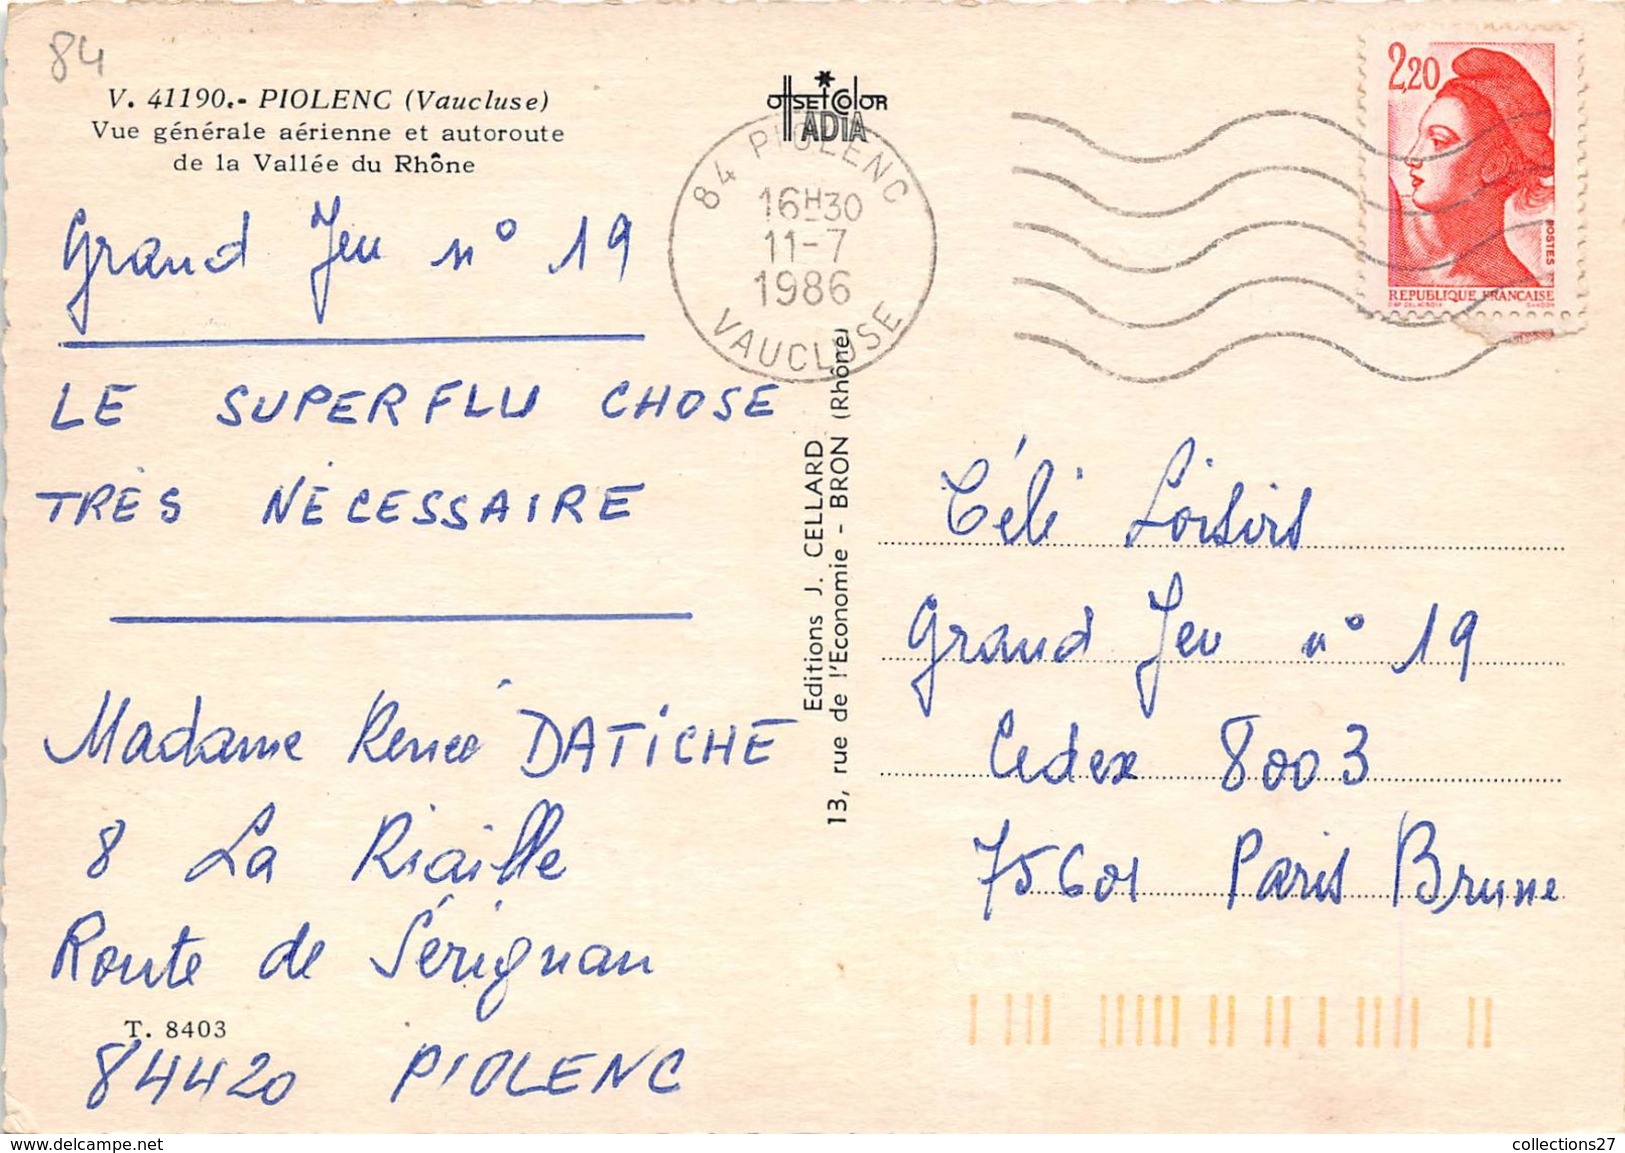 84
V. 41190.- PIOLENC (Vaucluse)
Vue générale aérienne et autoroute
de la Vallée du Rhône
Grand Jeu n° 19
LE SUPERFLU CHOSE
TRÈS NÉCESSAIRE
Madame Renée DATICHE
8 La Riaille
Route de Sérignan
T. 8403
84420 PIOLENC
OFFSET COLOR
ADIA
84 PIOLENC
16H30
11-7
1986
VAUCLUSE
Editions J. CELLARD
13, rue de l'Economie - BRON (Rhône)
2,20
POSTES
REPUBLIQUE FRANÇAISE
Télé Loisirs
Grand Jeu n° 19
Cedex 8003
75601 Paris Brune
www.delcampe.net
collections27